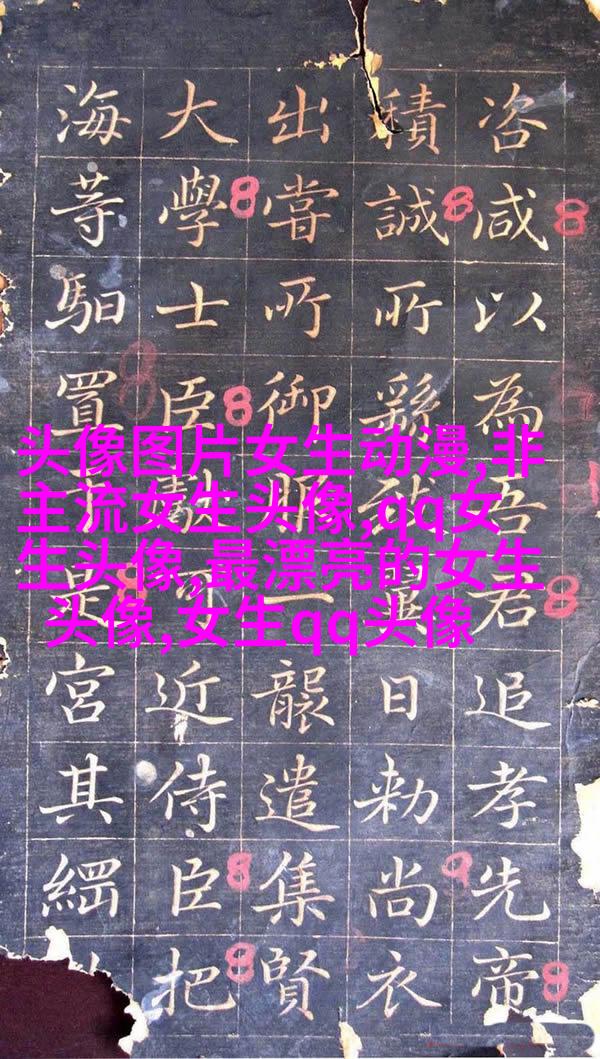 咨咸以為吾君追孝先帝
積誠所繇日勅尚衣
出嘗所御服一襲遣集賢
大學士臣近侍臣把
海等馹置宮其
头像图片女生动漫,非
主流女生头像,qq女
生头像,最漂亮的女生
头像,女生qq头像